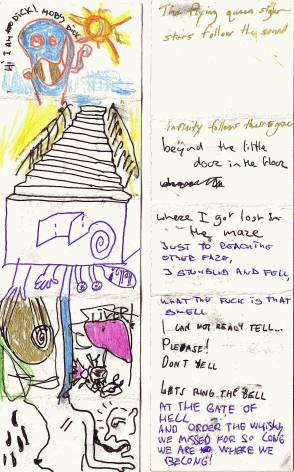 Hi I AM DICK! MOBY DICK!
The flying queen
stars follow the sound
infinity follow the
beyond the little
door in the floor
where I got lost in
the maze
JUST TO REACHING
OTHER
I STUMBLED AND FELL,
WHAT THE FUCK IS THAT
SMELL
I CAN NOT REALY TELL...
PLEASE!
DONT YELL
LETS RING THE BELL
AT THE GATE OF
HELL
AND ORDER THE WHISKY
WE MISSED FOR SO LONG
WE ARE WHERE WE
BELONG!